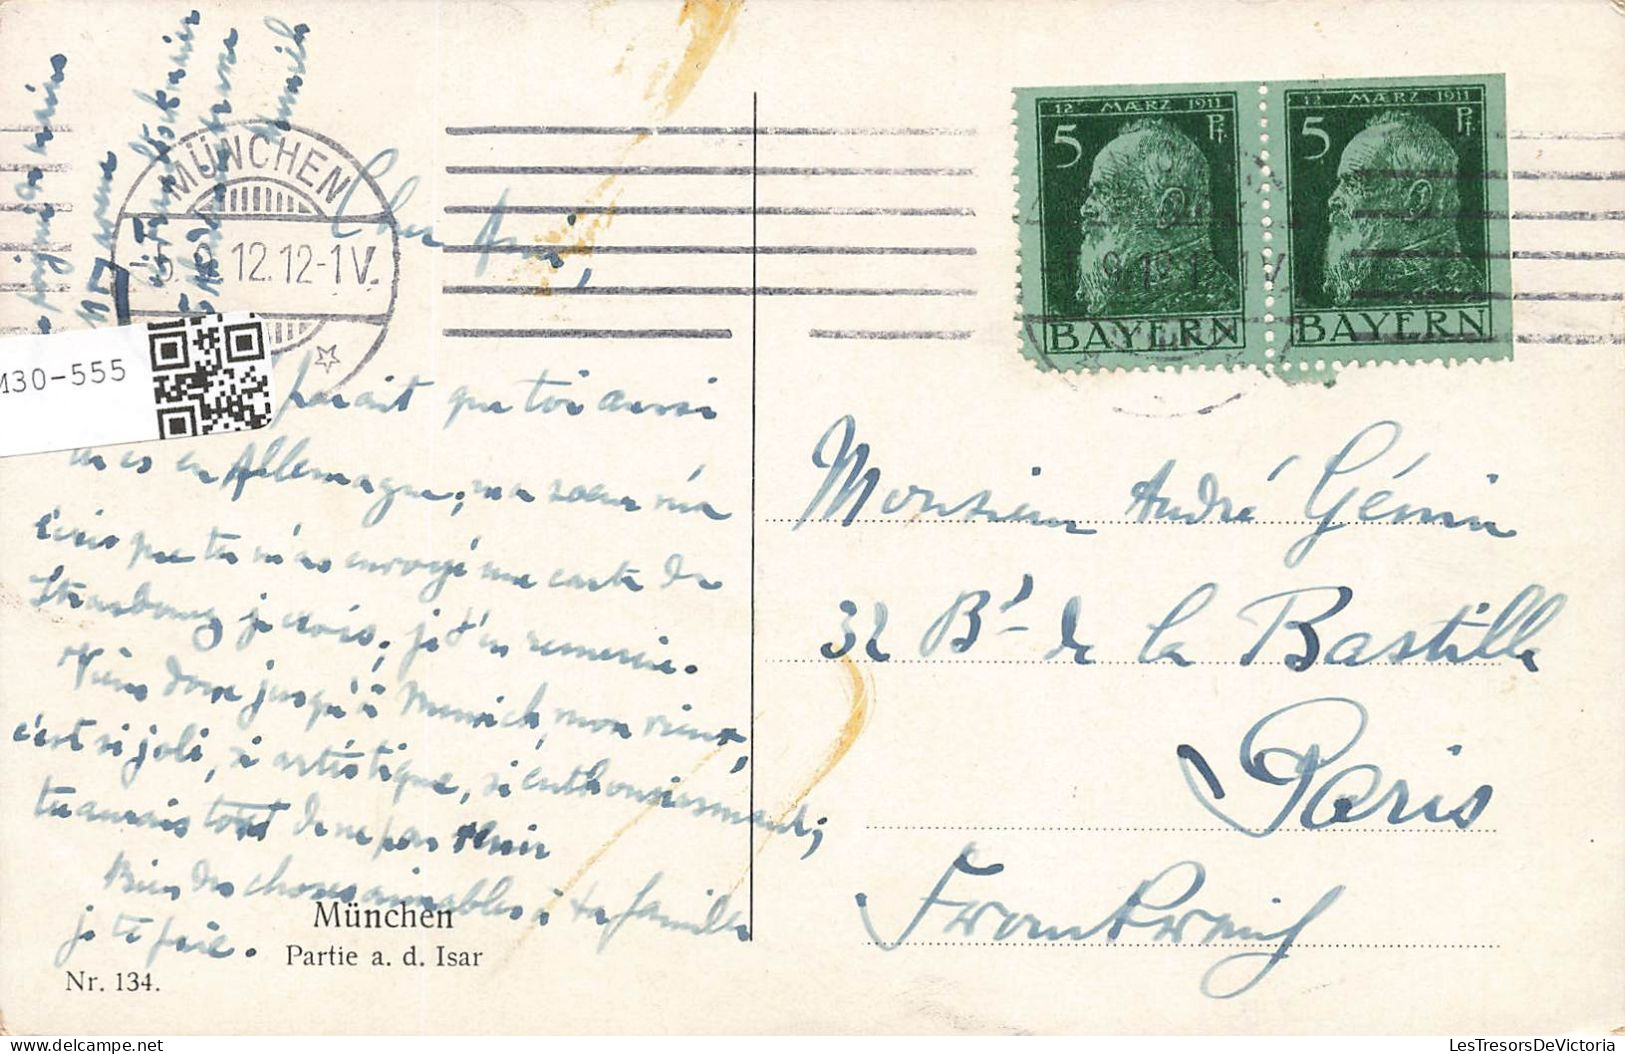 MÜNCHEN
5.9.12.12-1V.
130-555
Cher Ami,
parait que toi aussi
tu es en Allemagne; ma sœur m'a
écris que tu m'as envoyé une carte de
Strasbourg je crois; je t'en remercie.
Viens donc jusqu'à Munich, mon vieux,
c'est si joli, si artistique, si enthousiasmant;
tu aurais tort de ne pas venir
Bien des choses aimables à ta famille
je te prie.
München
Partie a. d. Isar
Nr. 134.
12 MÆRZ 1911
5 Pf.
BAYERN
12 MÆRZ 1911
5 Pf.
BAYERN
Monsieur André Génin
32 Bd de la Bastille
Paris
Frankreich
LesTresorsDeVictoria.com